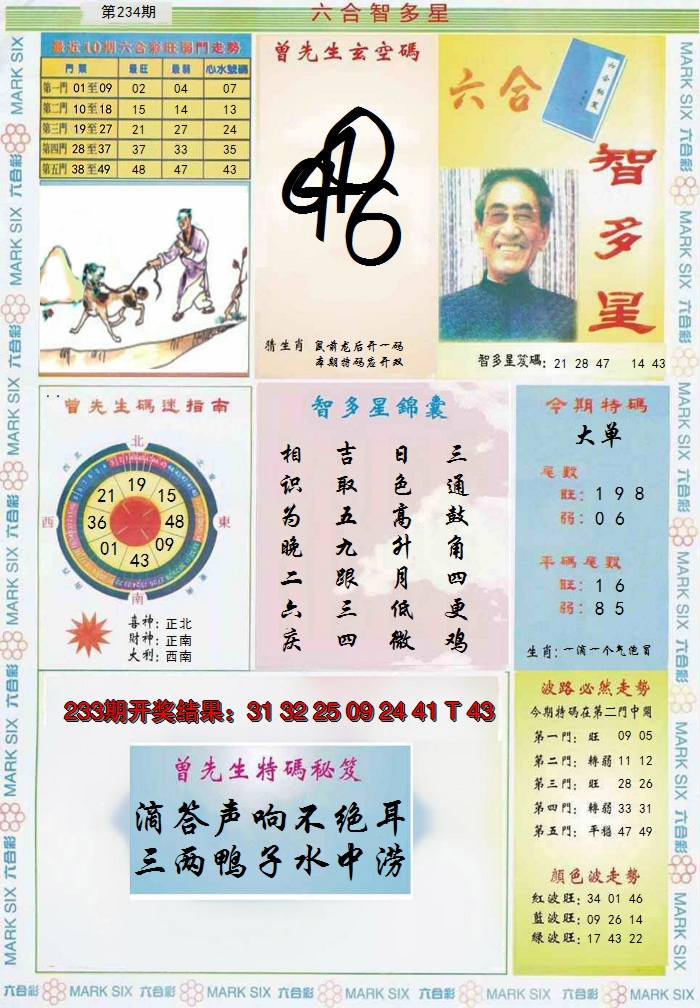 第234期
六合智多星
最近10期六合彩旺弱門走勢
門類 最旺 最弱 心水號碼
第一門 01至09 02 04 07
第二門 10至18 15 14 13
第三門 19至27 21 27 24
第四門 28至37 37 33 35
第五門 38至49 48 47 43
曾先生玄空碼
猜生肖 鼠前龙后开一码
本期特码应开双
六合
智多星
智多星笈碼: 21 28 47 14 43
曾先生碼迷指南
北
西北
東北
西
東
南
19
15
48
09
43
01
36
21
喜神: 正北
財神: 正南
大利: 西南
智多星錦囊
三通鼓角四更鸡
日色高升月低微
吉取五九跟三四
相识为晚二六庆
今期特碼
大单
尾數
旺: 1 9 8
弱: 0 6
平碼尾數
旺: 1 6
弱: 8 5
生肖: 一滴一个气泡冒
233期开奖结果: 31 32 25 09 24 41 T 43
曾先生特碼秘笈
滴答声响不绝耳
三两鸭子水中涝
波路必然走勢
今期特碼在第二門中開
第一門: 旺 09 05
第二門: 轉弱 11 12
第三門: 旺 28 26
第四門: 轉弱 33 31
第五門: 平穩 47 49
顏色波走勢
紅波旺: 34 01 46
藍波旺: 09 26 14
綠波旺: 17 43 22
MARK SIX 六合彩